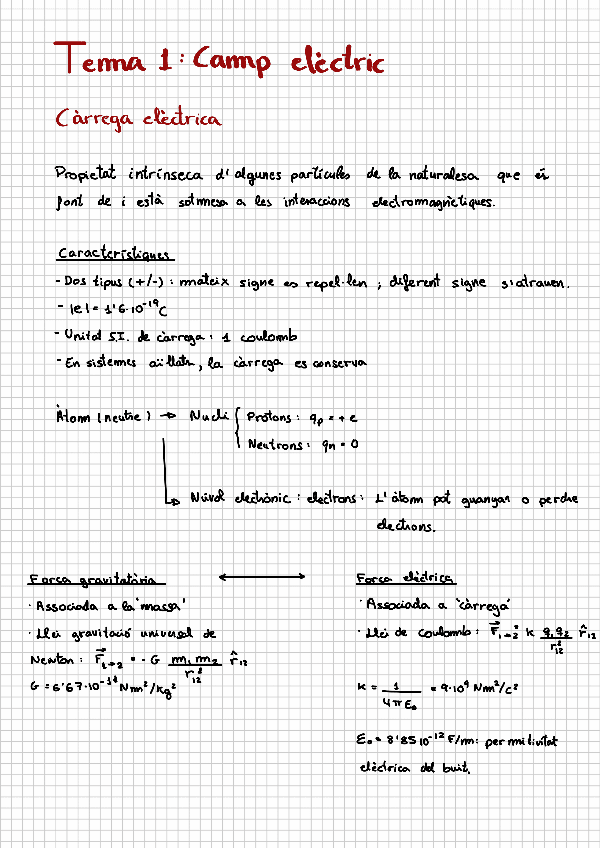 Tema 1: Camp elèctric
Càrrega elèctrica
Propietat intrínseca d'algunes partícules de la naturalesa que és
font de i està sotmesa a les interaccions electromagnètiques.
Característiques
- Dos tipus (+/-) : mateix signe es repel·len ; diferent signe s'atrauen.
- |e| = 1'6·10⁻¹⁹C
- Unitat S.I. de càrrega : 1 coulomb
- En sistemes aïllats, la càrrega es conserva
Àtom (neutre) → Nucli { Protons : qₚ = + e
Neutrons : qn = 0
↳ Núvol electrònic : electrons : L'àtom pot guanyar o perdre
electrons.
Força gravitatòria ↔ Força elèctrica
· Associada a la 'massa' · Associada a 'càrrega'
· Llei gravitació universal de · Llei de Coulomb : F⃗₁→₂ = k q₁q₂/r₁₂² r̂₁₂
Newton : F⃗₁→₂ = - G m₁m₂/r₁₂² r̂₁₂
G = 6'67·10⁻¹¹ Nm²/kg² k = 1/4πε₀ = 9·10⁹ Nm²/c²
ε₀ = 8'85 10⁻¹² F/m : permitivitat
elèctrica del buit.